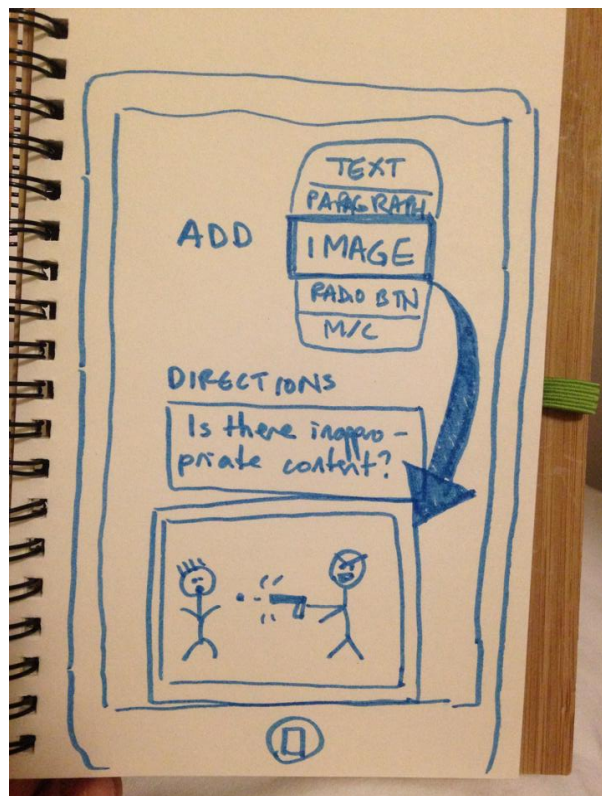 TEXT
PARAGRAPH
ADD
IMAGE
RADIO BTN
M/C
DIRECTIONS
Is there inappro-
priate content?